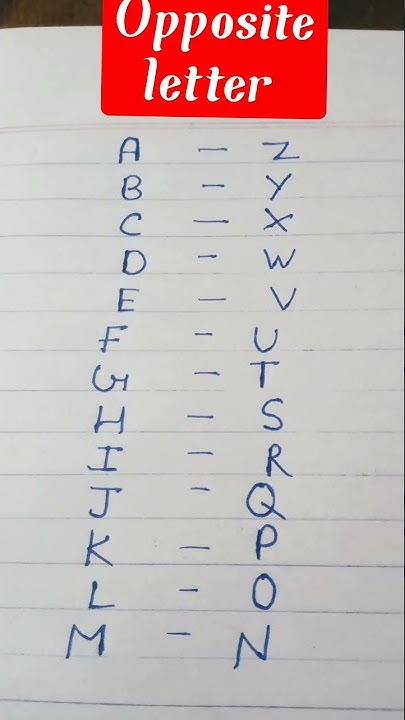 Opposite
letter
A - Z
B - Y
C - X
D - W
E - V
F - U
G - T
H - S
I - R
J - Q
K - P
L - O
M - N